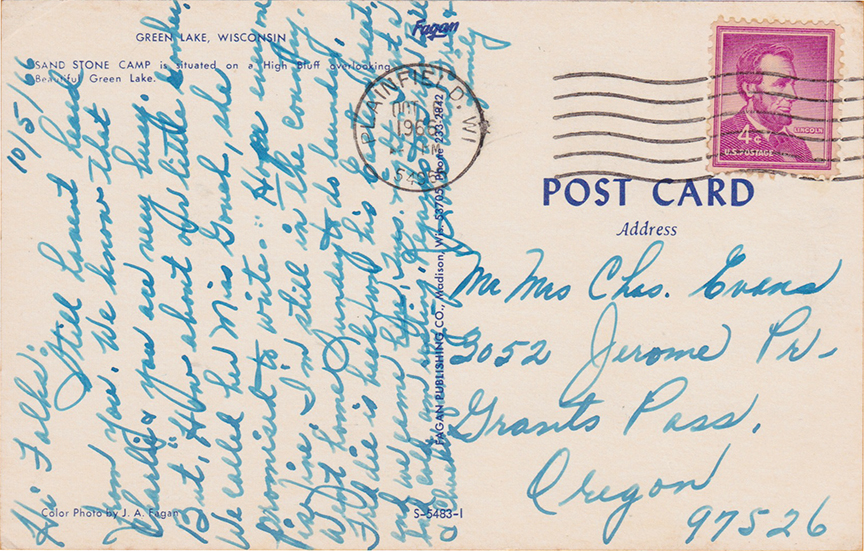 GREEN LAKE, WISCONSIN
SAND STONE CAMP is situated on a High Bluff overlooking
Beautiful Green Lake.
Fagan
PLAINFIELD, WI
OCT
1966
PM
LINCOLN
4¢
U.S. POSTAGE
POST CARD
Address
Mr Mrs Chas. Evans
3052 Jerome Pr-
Grants Pass,
Oregon
97526
10/5/66
Hi Folks:
Still havent heard
from you. We know that
Charlie & you are very busy.
But, "How about our little
We called her Miss Gouch, she
promised to write." Hope everyone
is fine. I'm still in the country.
Went home Sunday to do laundry.
Freddie is
and we came
family
FAGAN PUBLISHING CO., Madison, Wis. 53705, Phone 233-2842
Color Photo by J. A. Fagan
S-5483-1